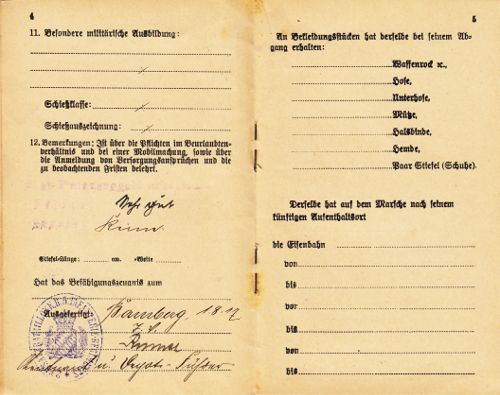 4
11. Besondere militärische Ausbildung:
Schießklasse:
Schießauszeichnung:
12. Bemerkungen: Ist über die Pflichten im Beurlaubten-
verhältnis und bei einer Mobilmachung, sowie über
die Anmeldung von Versorgungsansprüchen und die
zu beobachtenden Fristen belehrt.
Sehr gut
Keine
Stiefel-Länge: cm. -Weite
Hat das Befähigungszeugnis zum
Ausgefertigt: Bamberg, 18.12
Leutnant u.
5
An Bekleidungsstücken hat derselbe bei seinem Ab-
gang erhalten:
Waffenrock ꝛc.,
Hose,
Unterhose,
Mütze,
Halsbinde,
Hemde,
Paar Stiefel (Schuhe).
Derselbe hat auf dem Marsche nach seinem
künftigen Aufenthaltsort
die Eisenbahn
von
bis
von
bis
von
bis